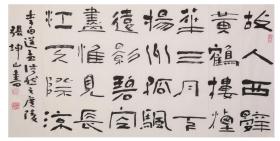 故人西辭
黃鶴樓煙
華三月下
揚州孤颿
遠影碧空
盡惟見長
江天際流
李白送孟浩然之廣陵
張坤山書